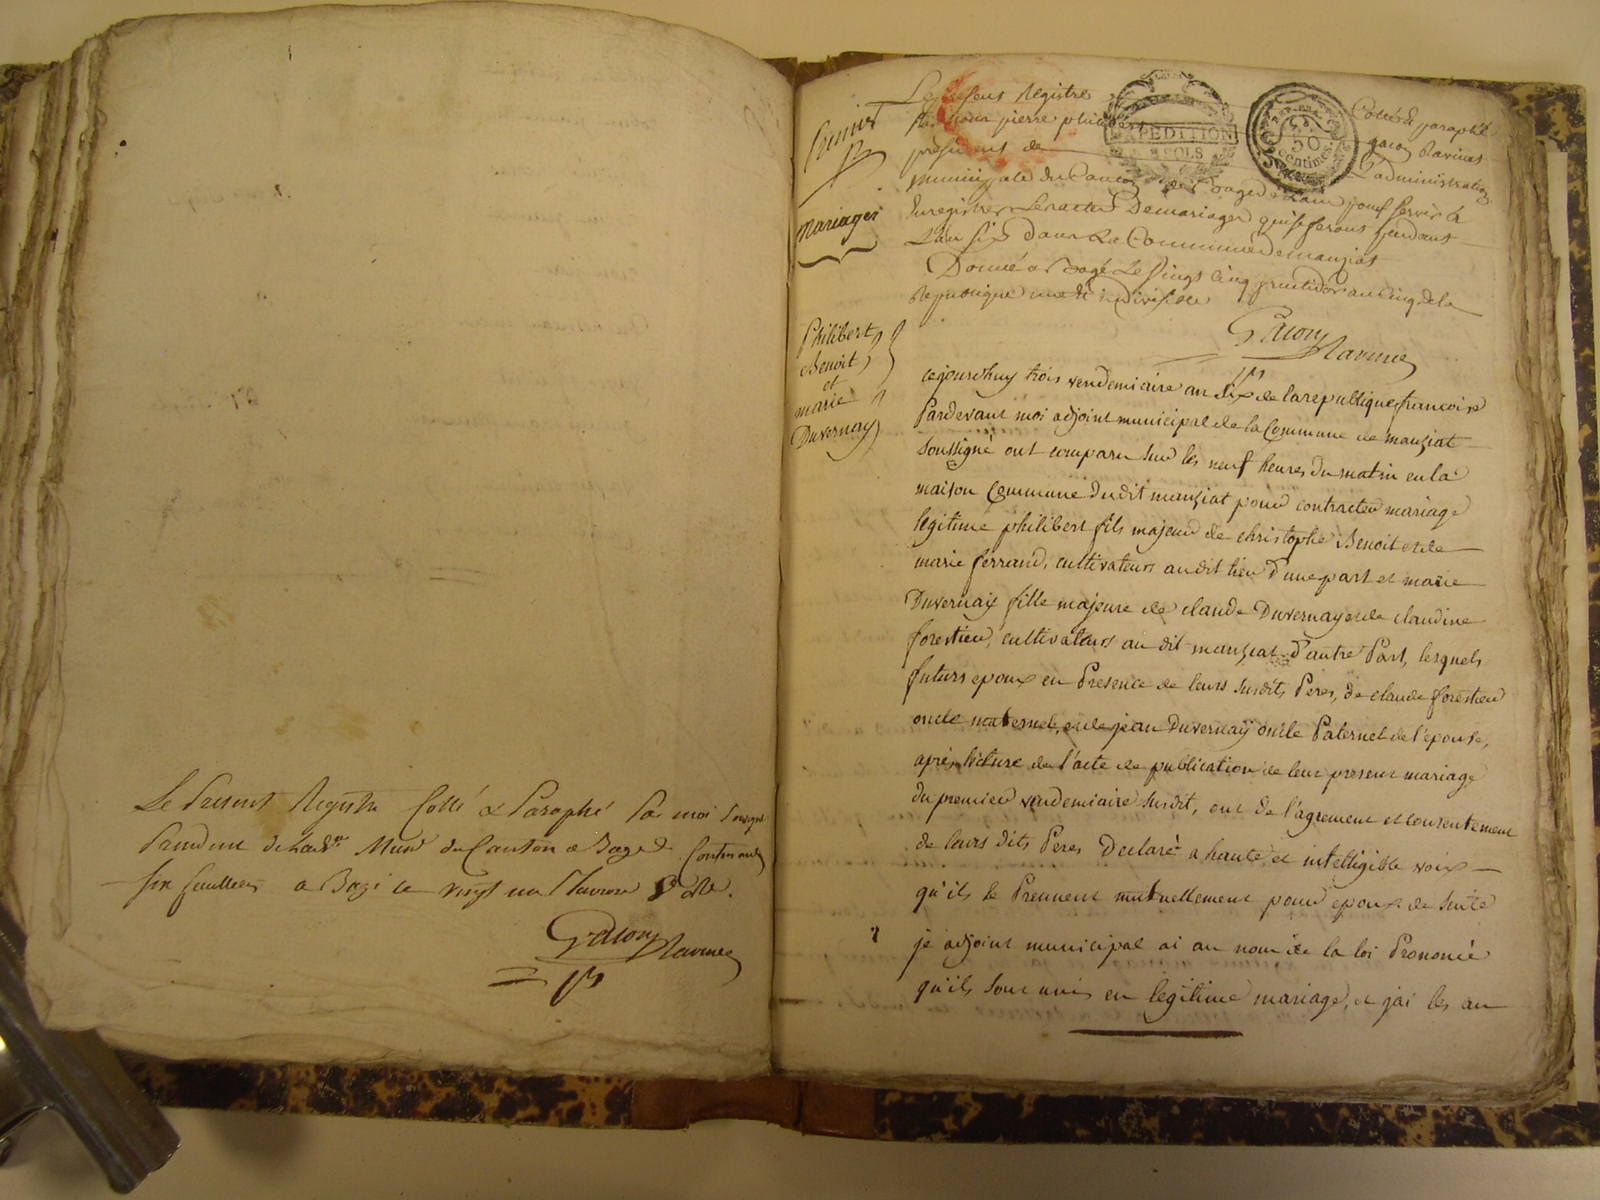 Le Present Registre Cotté & Paraphé Par moi soussigné
President de Lad.on Mun.le du Canton de Bagé Contenant
six feuillets a Bagé le vingt un
Gacon Ravinet
mariages
Philibert
Benoit
et
marie
Duvernay
Le presens Registre Cotté & paraphé
Par nous pierre philibert gacon Ravinet
president de L'administration
municipale du Canton de Bagé pour servir a
Enregistrer Les actes Demariages qui se ferons pendant
L'an six dans La Commune de manziat
Donné a Bagé Le Vingt Cinq fructidor an Cinq de la
Republique une et indivisible
Gacon Ravinet
cejourdhuy trois vendemiaire an six de la republique francoise
Pardevant moi adjoint municipal de la Commune de manziat
soussigné ont comparu sur les neuf heures du matin en la
maison Commune dudit manziat pour contracter mariage
legitime philibert fils majeur de christophe Benoit et de
marie ferrand, cultivateurs audit lieu d'une part et marie
Duvernay fille majeure de claude Duvernay et de claudine
forestier, cultivateurs au dit manziat d'autre Part, lesquels
futurs epoux en Presence de leurs susdits Peres, de claude forestier
oncle maternel, et de jean Duvernaÿ oncle Paternel de l'epouse,
après lecture de l'acte de publication de leur present mariage
du premier vendemiaire susdit, ont de l'agrement et consentement
de leurs dits Peres Declaré a haute et intelligible voix
qu'ils se Prennent mutuellement pour epoux de suite
je adjoint municipal ai au nom de la loi Prononcé
qu'ils sont unis en legitime mariage, et jai les an
EXPEDITION
SOLS
50
centimes.